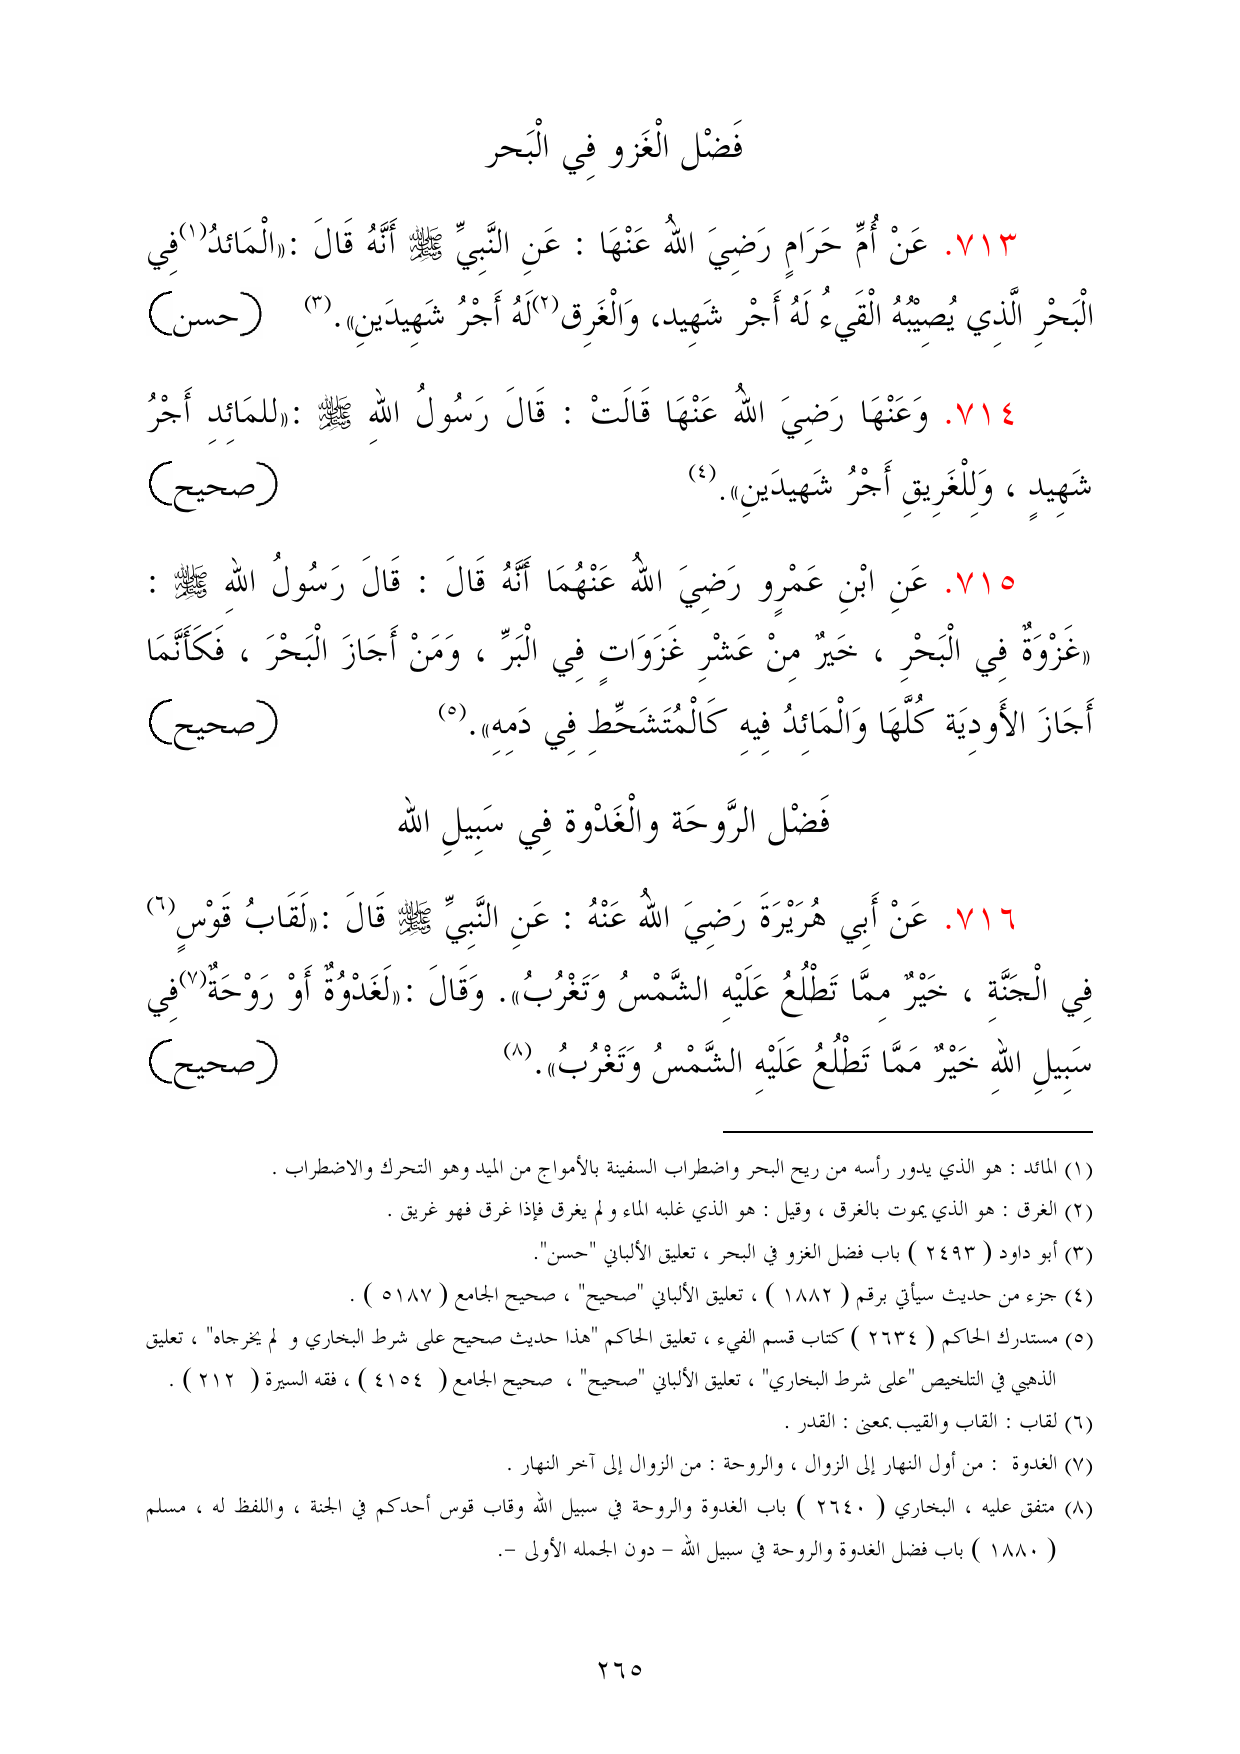 فَضْل الْغَزو فِي الْبَحر
٧١٣. عَنْ أُمِّ حَرَامٍ رَضِيَ اللهُ عَنْهَا : عَنِ النَّبِيِّ ﷺ أَنَّهُ قَالَ :«الْمَائدُ(١)فِي
الْبَحْرِ الَّذِي يُصِيْبُهُ الْقَيءُ لَهُ أَجْر شَهِيد، وَالْغَرِق(٢)لَهُ أَجْرُ شَهِيدَينِ».(٣) (حسن)
٧١٤. وَعَنْهَا رَضِيَ اللهُ عَنْهَا قَالَتْ : قَالَ رَسُولُ اللهِ ﷺ :«للمَائِدِ أَجْرُ
شَهِيدٍ ، وَلِلْغَرِيقِ أَجْرُ شَهيدَينِ».(٤) (صحيح)
٧١٥. عَنِ ابْنِ عَمْرٍو رَضِيَ اللهُ عَنْهُمَا أَنَّهُ قَالَ : قَالَ رَسُولُ اللهِ ﷺ :
«غَزْوَةٌ فِي الْبَحْرِ ، خَيرٌ مِنْ عَشْرِ غَزَوَاتٍ فِي الْبَرِّ ، وَمَنْ أَجَازَ الْبَحْرَ ، فَكَأَنَّمَا
أَجَازَ الأَودِيَة كُلَّهَا وَالْمَائِدُ فِيهِ كَالْمُتَشَحِّطِ فِي دَمِهِ».(٥) (صحيح)
فَضْل الرَّوحَة والْغَدْوة فِي سَبِيلِ الله
٧١٦. عَنْ أَبِي هُرَيْرَةَ رَضِيَ اللهُ عَنْهُ : عَنِ النَّبِيِّ ﷺ قَالَ :«لَقَابُ قَوْسٍ(٦)
فِي الْجَنَّةِ ، خَيْرٌ مِمَّا تَطْلُعُ عَلَيْهِ الشَّمْسُ وَتَغْرُبُ». وَقَالَ :«لَغَدْوُةٌ أَوْ رَوْحَةٌ(٧)فِي
سَبِيلِ اللهِ خَيْرٌ مَمَّا تَطْلُعُ عَلَيْهِ الشَّمْسُ وَتَغْرُبُ».(٨) (صحيح)
(١) المائد : هو الذي يدور رأسه من ريح البحر واضطراب السفينة بالأمواج من الميد وهو التحرك والاضطراب .
(٢) الغرق : هو الذي يموت بالغرق ، وقيل : هو الذي غلبه الماء و لم يغرق فإذا غرق فهو غريق .
(٣) أبو داود ( ٢٤٩٣ ) باب فضل الغزو في البحر ، تعليق الألباني "حسن".
(٤) جزء من حديث سيأتي برقم ( ١٨٨٢ ) ، تعليق الألباني "صحيح" ، صحيح الجامع ( ٥١٨٧ ) .
(٥) مستدرك الحاكم ( ٢٦٣٤ ) كتاب قسم الفيء ، تعليق الحاكم "هذا حديث صحيح على شرط البخاري و لم يخرجاه" ، تعليق
الذهبي في التلخيص "على شرط البخاري" ، تعليق الألباني "صحيح" ، صحيح الجامع ( ٤١٥٤ ) ، فقه السيرة ( ٢١٢ ) .
(٦) لقاب : القاب والقيب بمعنى : القدر .
(٧) الغدوة : من أول النهار إلى الزوال ، والروحة : من الزوال إلى آخر النهار .
(٨) متفق عليه ، البخاري ( ٢٦٤٠ ) باب الغدوة والروحة في سبيل الله وقاب قوس أحدكم في الجنة ، واللفظ له ، مسلم
( ١٨٨٠ ) باب فضل الغدوة والروحة في سبيل الله – دون الجمله الأولى –.
٢٦٥